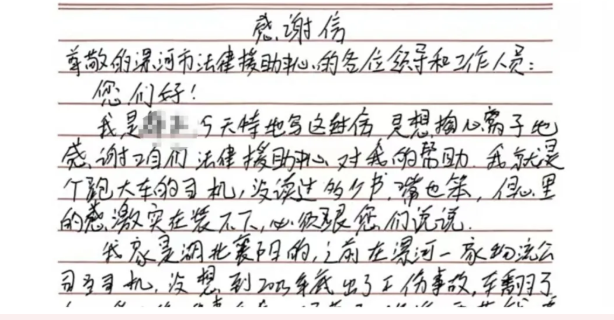 感谢信
尊敬的漯河市法律援助中心的各位领导和工作人员：
您们好！
我是 今天特地写这封信 是想掏心窝子地
感谢咱们法律援助中心对我的帮助. 我就是
个跑大车的司机，没读过多少书，嘴也笨，但心里
的感激实在装不下，必须跟您们说说.
我家是湖北襄阳的，之前在漯河一家物流公
司当司机，没想到 年底出了工伤事故，车翻了